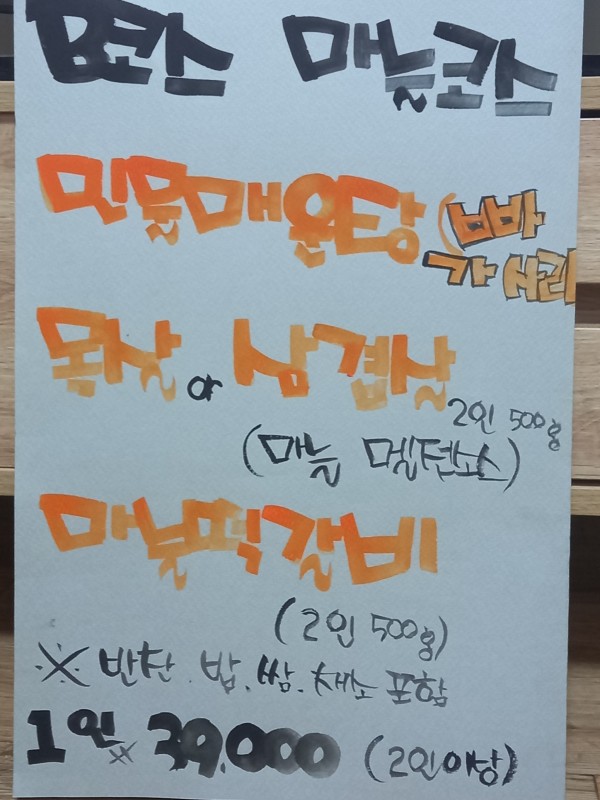 B코스 마늘코스
민물매운탕 (빠
가사리
목살 or 삼겹살
2인 500g
(마늘 멜젓소스)
마늘떡갈비
(2인 500g)
※ 반찬. 밥. 쌈. 채소 포함
1인 ※ 39,000 (2인이상)